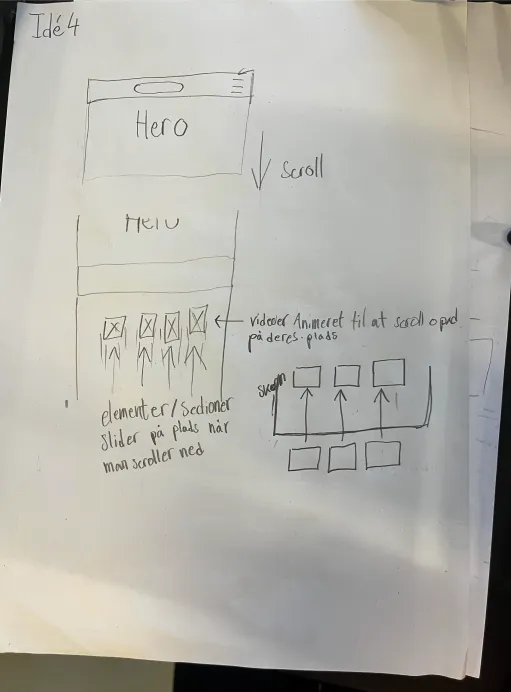 Idé 4
Hero
Scroll
Hero
videoer Animeret til at scroll opad
på deres plads
skærm
elementer/Sectioner
slider på plads når
man scroller ned